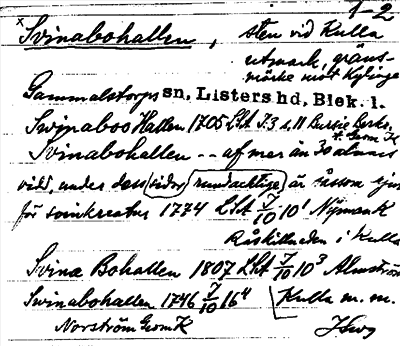 1-2
x Svinabohallen, sten vid Kulla
utmark, gräns-
märke mot Kylinge
Gammalstorps sn, Listers hd, Blek. l.
Swinaboo Hallen 1705 LSt J.3 s. 11 Bursie Besks.
t. Geom K
Svinabohallen -- af mer än 30 alnars
vidd, under dess (sidor, rundachtige) är såsom
för svinkreatur 1774 LSt J/10 10¹ Nyman K
Råskillnaden i Kulla
Svina Bohallen 1807 LSt J/10 10³ Almström
Swinabohallen 1746 J/10 16⁴ Kulla m. m.
Norström Geom K